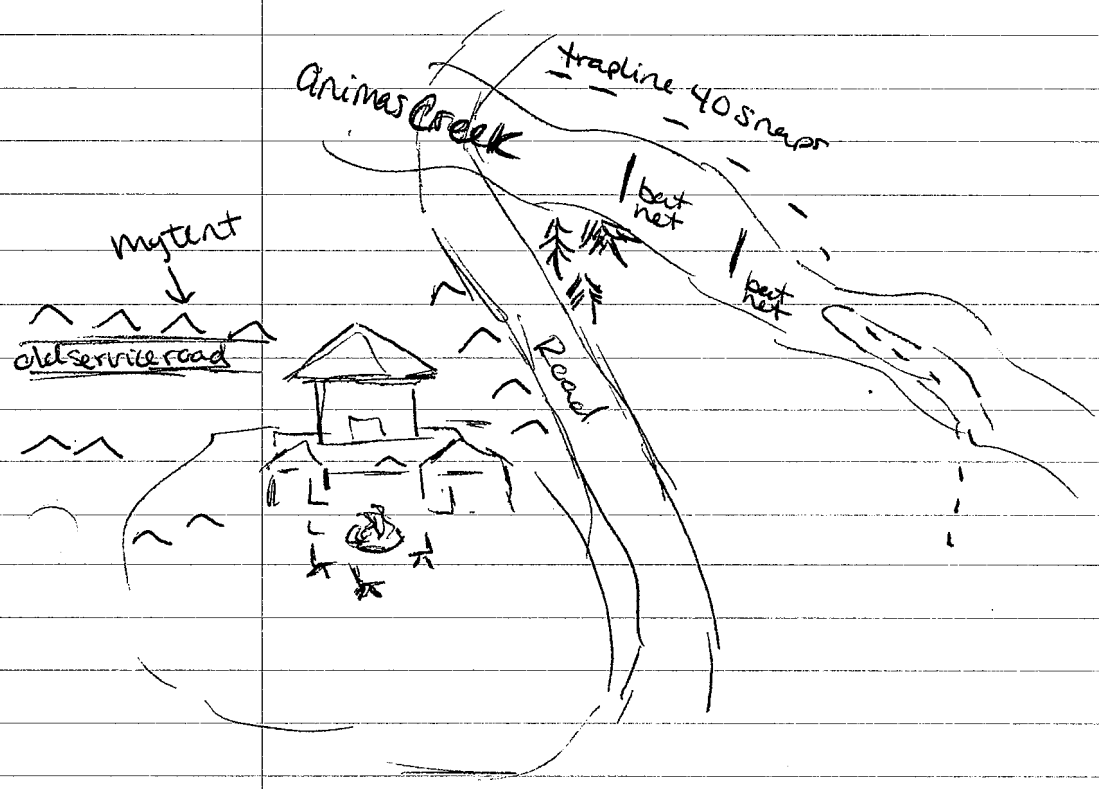 trapline 40 snaps
Animas Creek
bat
net
my tent
bat
net
old service road
Road